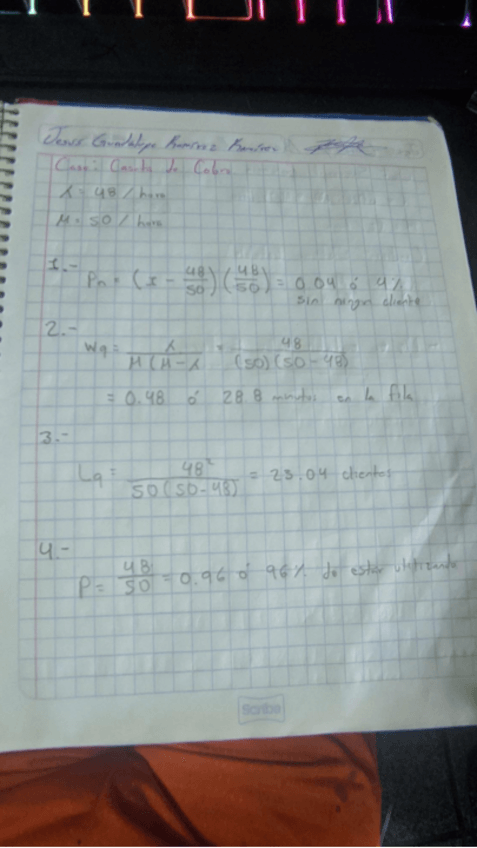 Jesus Guadalupe Ramirez Ramirez
Caso: Caseta de Cobro
λ = 48 / hora
M = 50 / hora
1.-
Pn = (1 - 48/50)(48/50) = 0.04 ó 4%
sin ningun cliente
2.-
Wq = λ/M(M-λ = 48/(50)(50-48)
= 0.48 ó 28.8 minutos en la fila
3.-
Lq = 48²/50(50-48) = 23.04 clientes
4.-
P = 48/50 = 0.96 ó 96% de estar utilizando
Scribe